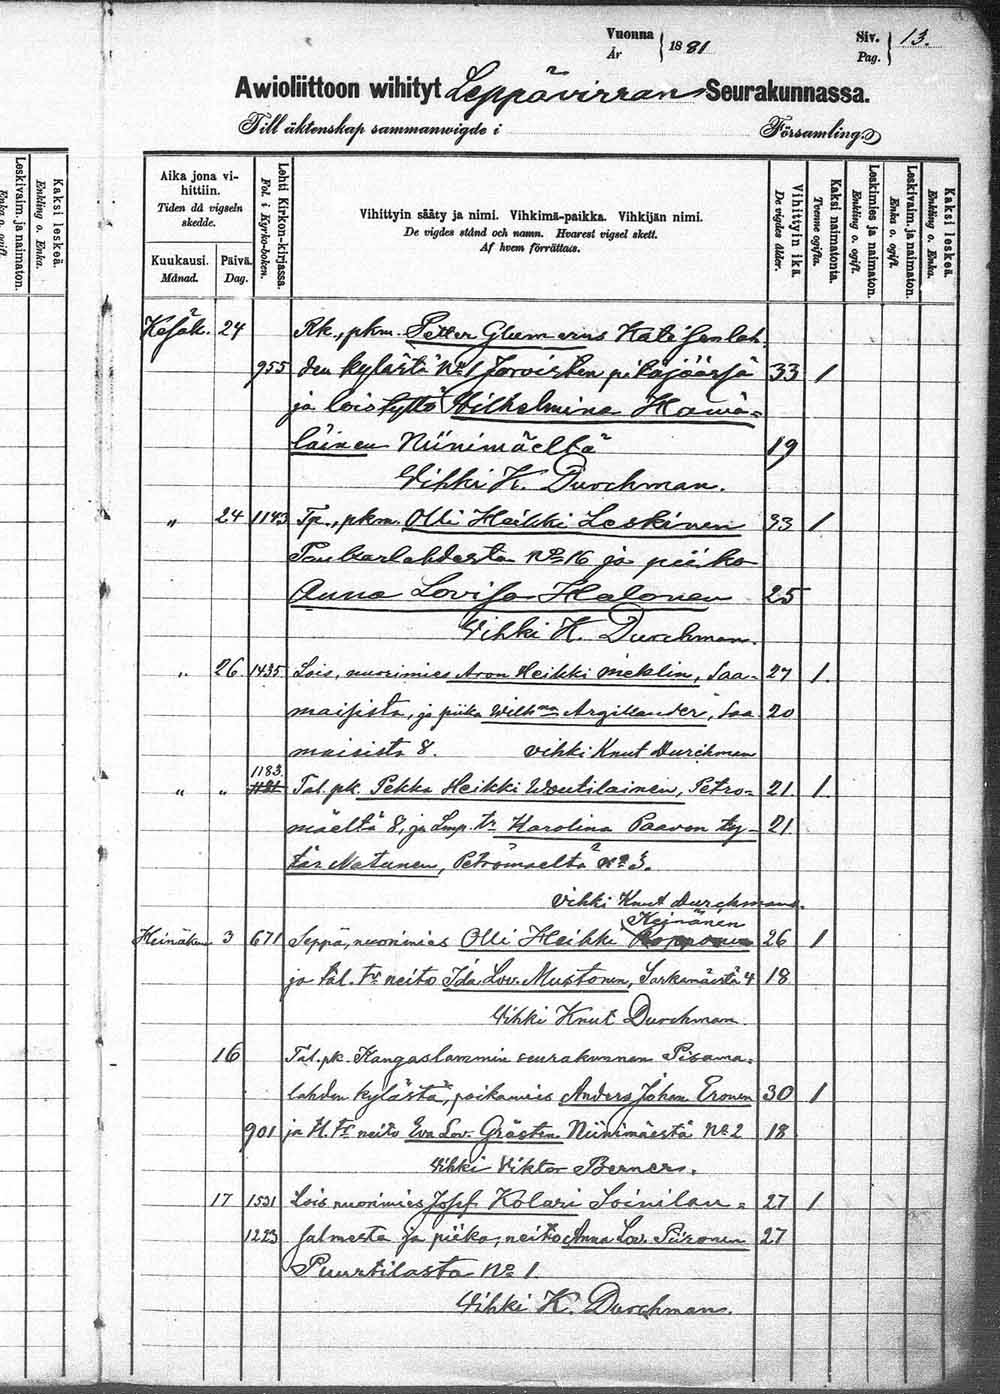 Vuonna 1881 Siv. 13.
År Pag.
Awioliittoon wihityt Leppävirran Seurakunnassa.
Till äktenskap sammanwigde i Församling.
Aika jona vihittiin.
Tiden då vigseln skedde.
Kuukausi.
Månad.
Päivä.
Dag.
Lehti Kirkon-kirjassa.
Fol. i Kyrko-boken.
Vihittyin sääty ja nimi. Vihkimä-paikka. Vihkijän nimi.
De vigdes stånd och namn. Hvarest vigsel skett.
Af hvem förrättats.
Vihittyin ikä.
De vigdes ålder.
Kaksi naimatonta.
Tvenne ogifta.
Leskimies ja naimaton.
Enkling o. ogift.
Leskivaim. ja naimaton.
Enka o. ogift.
Kaksi leskeä.
Enkling o. Enka.
Leskivaim. ja naimaton.
Enka o. ogift.
Kaksi leskeä.
Enkling o. Enka.
Kesäk. 24 Rk., pkm. Petter Glumerus
955 den kylästä No 1 33 1
ja loistyttö Wilhelmina Hawu=
läinen Niinimäeltä 19
Vihki K. Durchman.
" 24 1143 Tp., pkm. Olli Heikki Leskinen 33 1
No 16 ja piika
Anna Lovisa Halonen 25
Vihki K. Durchman.
" 26 1435 Lois, nuorimies Aron Heikki Meklin, Saa- 27 1
maisista, ja piika Wilhna Argillander, Saa 20
maisista 8. vihki Knut Durchman
" " 1183. Tal. pk. Pekka Heikki Woutilainen, Petro- 21 1
mäeltä 8, ja Lmp. tr Karolina Paavon ty- 21
tär Natunen, Petromäeltä No 3.
vihki Knut Durchman.
Keinänen
Heinäkuu 3 671 Seppä, nuorimies Olli Heikki 26 1
ja tal. tr neito Ida Lov. Mustonen, Sarkamäeltä 4 18
Vihki Knut Durchman.
16 Tal. pk. Kangaslammin seurakunnan Pisama=
lahden kylästä, poikamies Anders Johan Eronen 30 1
901 ja tl. tr neito Eva Lov. Grästen Niinimäestä No 2 18
Vihki Viktor Berners.
17 1531 Lois, nuorimies Josef Kolari Soinilan= 27 1
1223 salmesta ja piika, neito Anna Lov. Piironen 27
Puurtilasta No 1.
Vihki K. Durchman.